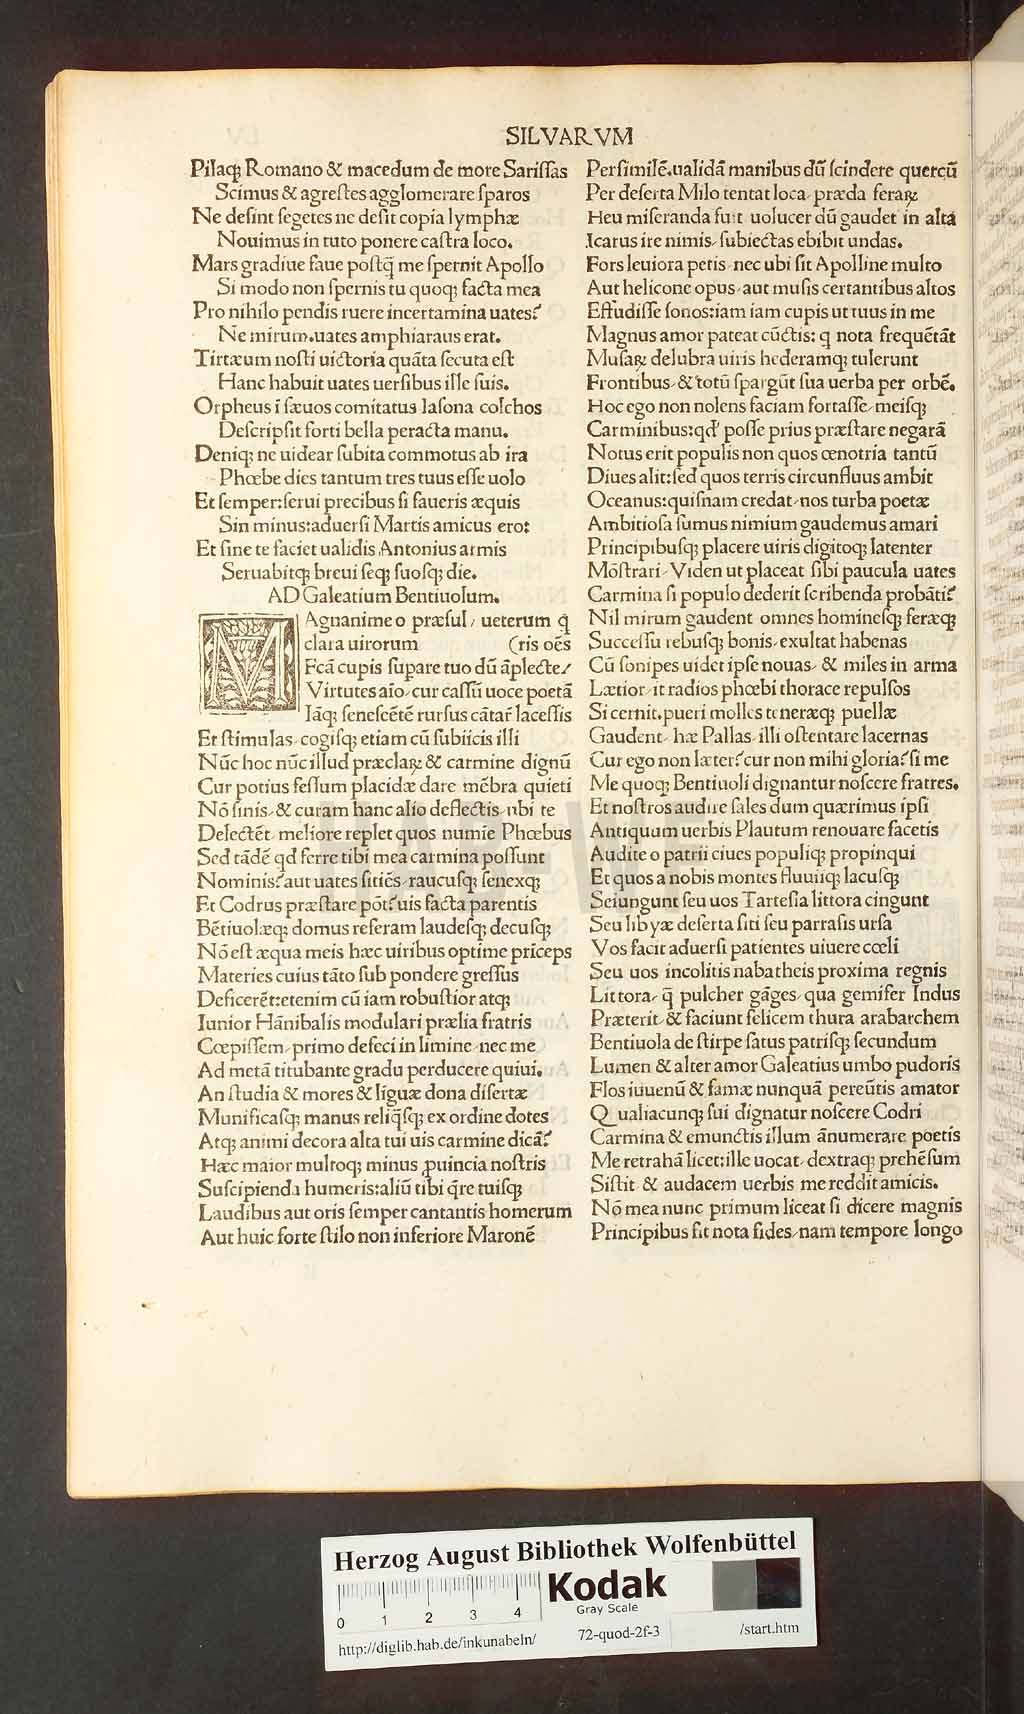 SILVARVM
Pilaqꝫ Romano & macedum de more Sariſſas
Scimus & agreſtes agglomerare ſparos
Ne deſint ſegetes ne deſit copia lymphæ
Nouimus in tuto ponere caſtra loco.
Mars gradiue faue poſtq̃ me ſpernit Apollo
Si modo non ſpernis tu quoqꝫ facta mea
Pro nihilo pendis ruere incertamina uates?
Ne mirum.uates amphiaraus erat.
Tirtæum noſti uictoria quãta ſecuta eſt
Hanc habuit uates uerſibus ille ſuis.
Orpheus ĩ ſæuos comitatus Iaſona colchos
Deſcripſit forti bella peracta manu.
Deniqꝫ ne uidear ſubita commotus ab ira
Phœbe dies tantum tres tuus eſſe uolo
Et ſemper:ſerui precibus ſi faueris æquis
Sin minus:aduerſi Martis amicus ero:
Et ſine te faciet ualidis Antonius armis
Seruabitqꝫ breui ſeqꝫ ſuoſqꝫ die.
AD Galeatium Bentiuolum.
MAgnanime o præſul/ ueterum q̃
clara uirorum (ris oẽs
Fcã cupis ſupare tuo dũ ãplecte/
Virtutes aĩo⸝ cur caſſũ uoce poetã
Iãqꝫ ſeneſcẽtẽ rurſus cãtar̃ laceſſis
Et ſtimulas⸝ cogiſqꝫ etiam cũ ſubiicis illi
Nũc hoc nũc illud præclaꝝ & carmine dignũ
Cur potius feſſum placidæ dare mẽbra quieti
Nõ ſinis⸝ & curam hanc alio deflectis⸝ ubi te
Delectẽt⸝ meliore replet quos numĩe Phœbus
Sed tãdẽ qd ferre tibi mea carmina poſſunt
Nominis? aut uates ſitiẽs⸝ raucuſqꝫ ſenexqꝫ
Et Codrus præſtare põt? uis facta parentis
Bẽtiuolæqꝫ domus referam laudeſqꝫ decuſqꝫ
Nõ eſt æqua meis hæc uiribus optime prĩceps
Materies cuius tãto ſub pondere greſſus
Deficerẽt:etenim cũ iam robuſtior atqꝫ
Iunior Hãnibalis modulari prælia fratris
Cœpiſſem⸝ primo defeci in limine⸝ nec me
Ad metã titubante gradu perducere quiui.
An ſtudia & mores & lĩguæ dona diſertæ
Munificaſqꝫ manus reliq̃ſqꝫ ex ordine dotes
Atqꝫ animi decora alta tui uis carmine dicã?
Hæc maior multoqꝫ minus ꝓuincia noſtris
Suſcipienda humeris:aliũ tibi q̃re tuiſqꝫ
Laudibus aut oris ſemper cantantis homerum
Aut huic forte ſtilo non inferiore Maronẽ
Perſimilẽ.ualidã manibus dũ ſcindere quercũ
Per deſerta Milo tentat loca⸝ præda feraꝝ
Heu miſeranda fuit uolucer dũ gaudet in alta
Icarus ire nimis⸝ ſubiectas ebibit undas.
Fors leuiora petis⸝ nec ubi ſit Apolline multo
Aut helicone opus⸝ aut muſis certantibus altos
Effudiſſe ſonos:iam iam cupis ut tuus in me
Magnus amor pateat cũctis: q nota frequẽtãt
Muſaꝝ delubra uiris hederamqꝫ tulerunt
Frontibus⸝ & totũ ſpargũt ſua uerba per orbẽ.
Hoc ego non nolens faciam fortaſſe⸝ meiſqꝫ
Carminibus:qd' poſſe prius præſtare negarã
Notus erit populis non quos œnotria tantũ
Diues alit:ſed quos terris circunfluus ambit
Oceanus:quiſnam credat⸝ nos turba poetæ
Ambitioſa ſumus nimium gaudemus amari
Principibuſqꝫ placere uiris digitoqꝫ latenter
Mõſtrari⸝ Viden ut placeat ſibi paucula uates
Carmina ſi populo dederit ſcribenda probãti?
Nil mirum gaudent omnes homineſqꝫ feræqꝫ
Succeſſu rebuſqꝫ bonis⸝ exultat habenas
Cũ ſonipes uidet ipſe nouas⸝ & miles in arma
Lætior⸝ it radios phœbi thorace repulſos
Si cernit.pueri molles teneræqꝫ puellæ
Gaudent⸝ hæ Pallas⸝ illi oſtentare lacernas
Cur ego non læter? cur non mihi gloria? ſi me
Me quoqꝫ Bentiuoli dignantur noſcere fratres.
Et noſtros audire ſales dum quærimus ipſi
Antiquum uerbis Plautum renouare facetis
Audite o patrii ciues populiqꝫ propinqui
Et quos a nobis montes fluuiiqꝫ lacuſqꝫ
Seiungunt ſeu uos Tarteſia littora cingunt
Seu libyæ deſerta ſiti ſeu parraſis urſa
Vos facit aduerſi patientes uiuere cœli
Seu uos incolitis nabatheis proxima regnis
Littora⸝ q̃ pulcher gãges⸝ qua gemifer Indus
Præterit⸝ & faciunt felicem thura arabarchem
Bentiuola de ſtirpe ſatus patriſqꝫ ſecundum
Lumen & alter amor Galeatius umbo pudoris
Flos iuuenũ & famæ nunquã pereũtis amator
Qualiacunqꝫ ſui dignatur noſcere Codri
Carmina & emunctis illum ãnumerare poetis
Me retrahã licet:ille uocat⸝ dextraqꝫ prehẽſum
Siſtit & audacem uerbis me reddit amicis.
Nõ mea nunc primum liceat ſi dicere magnis
Principibus ſit nota fides⸝ nam tempore longo
HAB-WF
Herzog August Bibliothek Wolfenbüttel
0 1 2 3 4
Kodak
Gray Scale
http://diglib.hab.de/inkunabeln/ 72-quod-2f-3 /start.htm